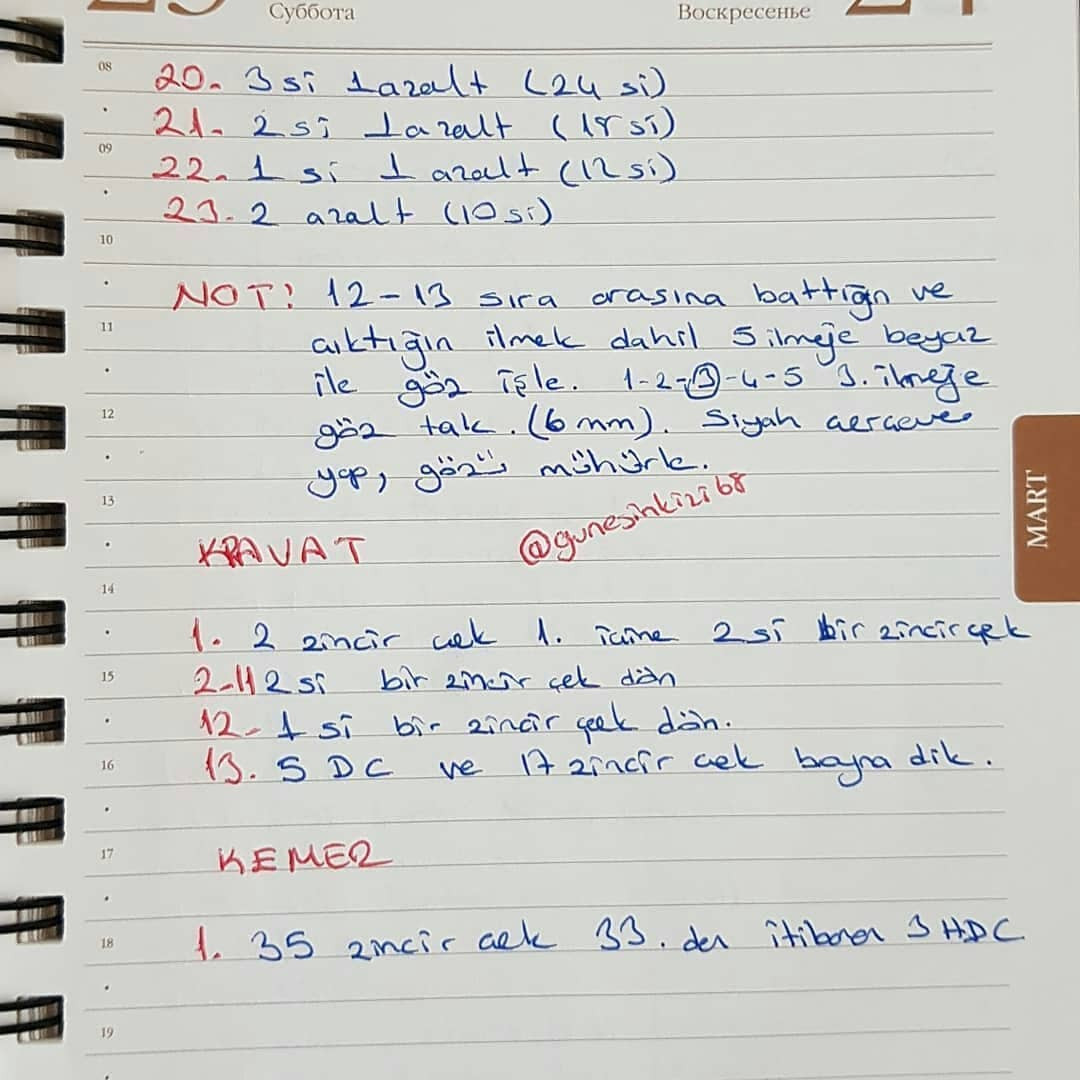 Суббота
Воскресенье
08 20. 3 si 1 azalt (24 si)
21. 2 si 1 azalt (18 si)
09 22. 1 si 1 azalt (12 si)
23. 2 azalt (10 si)
10
NOT! 12-13 sıra arasına battığın ve
11 çıktığın ilmek dahil 5 ilmeğe beyaz
ile göz işle. 1-2-3-4-5 3. ilmeğe
12 göz tak. (6 mm). Siyah çerçeve
yap, gözü mühürle.
13
@gunesinkizi68
KRAVAT
14
1. 2 zincir çek 1. içine 2 si bir zincir çek
15 2-11 2 si bir zincir çek dön
12- 1 si bir zincir çek dön.
16 13. 5 DC ve 17 zincir çek boyna dik.
17 KEMER
18 1. 35 zincir çek 33. den itibaren 3 HDC
19
MART